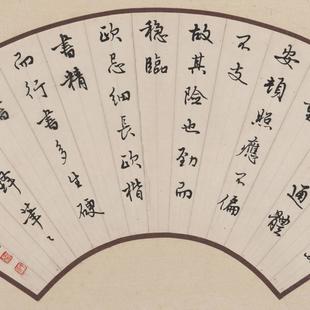 通體
安頓照應不偏
不支
故其險也勁而
穩臨
歐忌細長歐楷
書精
而行書多生硬